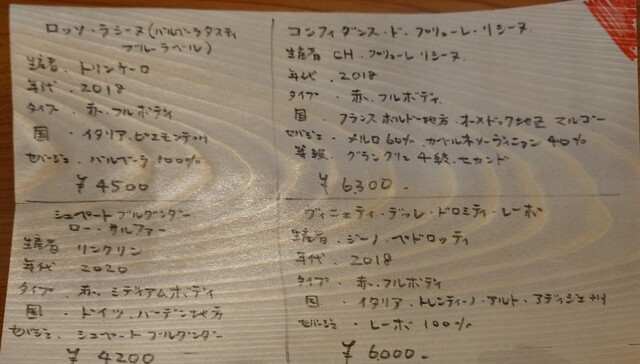 ロッソ・ラシーヌ(バルベーラダスティ
ブルーラベル)
生産者、トリンケーロ
年代、2018
タイプ・赤、フルボディ
国・イタリア、ピエモンテ州
セパージュ・バルベーラ100%
¥4500
コンフィダンス・ド・プリューレ・リシーヌ
生産者 CH、プリューレ リシーヌ
年代、2018
タイプ・赤、フルボディ
国・フランス ボルドー地方、オーメドック地区 マルゴー
セパージュ・メルロ60%、カベルネソーヴィニヨン40%
等級、グランクリュ4級、セカンド
¥6300-
シュペートブルグンダー
ロー・ザルファー
生産者 リンクリン
年代 2020
タイプ・赤、ミディアムボディ
国・ドイツ、バーデン地方
セパージュ・シュペートブルグンダー
¥4200
ヴィニェティ・デッレ・ドロミティ・レーボ
生産者、ジーノ・ペドロッティ
年代、2018
タイプ・赤、フルボディ
国・イタリア、トレンティーノ・アルト・アディジェ州
セパージュ・レーボ100%
¥6000-